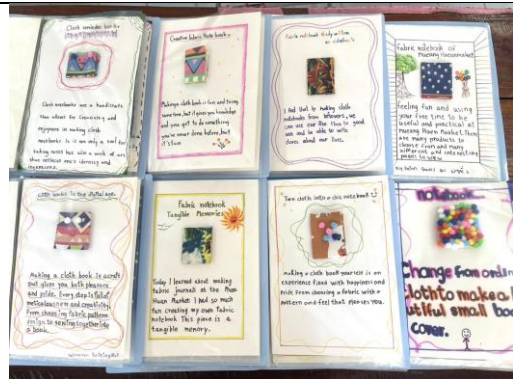 Cloth reminder book.
Cloth notebooks are a handicraft
that allows for
enjoyment in making cloth
notebooks. It is not only a tool for
taking notes but also a work of art
that reflects one's identity and
Creative fabric Note book.
Making a cloth book is fun and tiring
sometime, but it gives you knowledge
and you get to do something
you've never done before, but
it's fun
I feel that by making cloth
notebooks from leftovers, we
can use our free time to good
use and be able to write
stories about our lives.
Fabric notebook of
feeling fun and using
your free time to be
useful and practical at
are many products to
choose from and many
different and interesting
cloth books in the digital age.
Making a cloth book is a craft
that gives you both pleasure
and pride. Every step is full of
meticulousness and creativity.
From choosing fabric, pattern
design to sewing together like
a book.
Fabric notebook
Tangible Memories
Today I learned about making
fabric journals at the
Huan Market. I had so much
fun creating my own fabric
notebook. This piece is a
tangible memory.
Turn cloth into a chic notebook
making a cloth book yourself is an
experience filled with happiness and
pride from choosing a fabric with a
pattern and feel that pleases you.
notebook
Change from ordin
cloth to make a b
utiful small boo
cover.